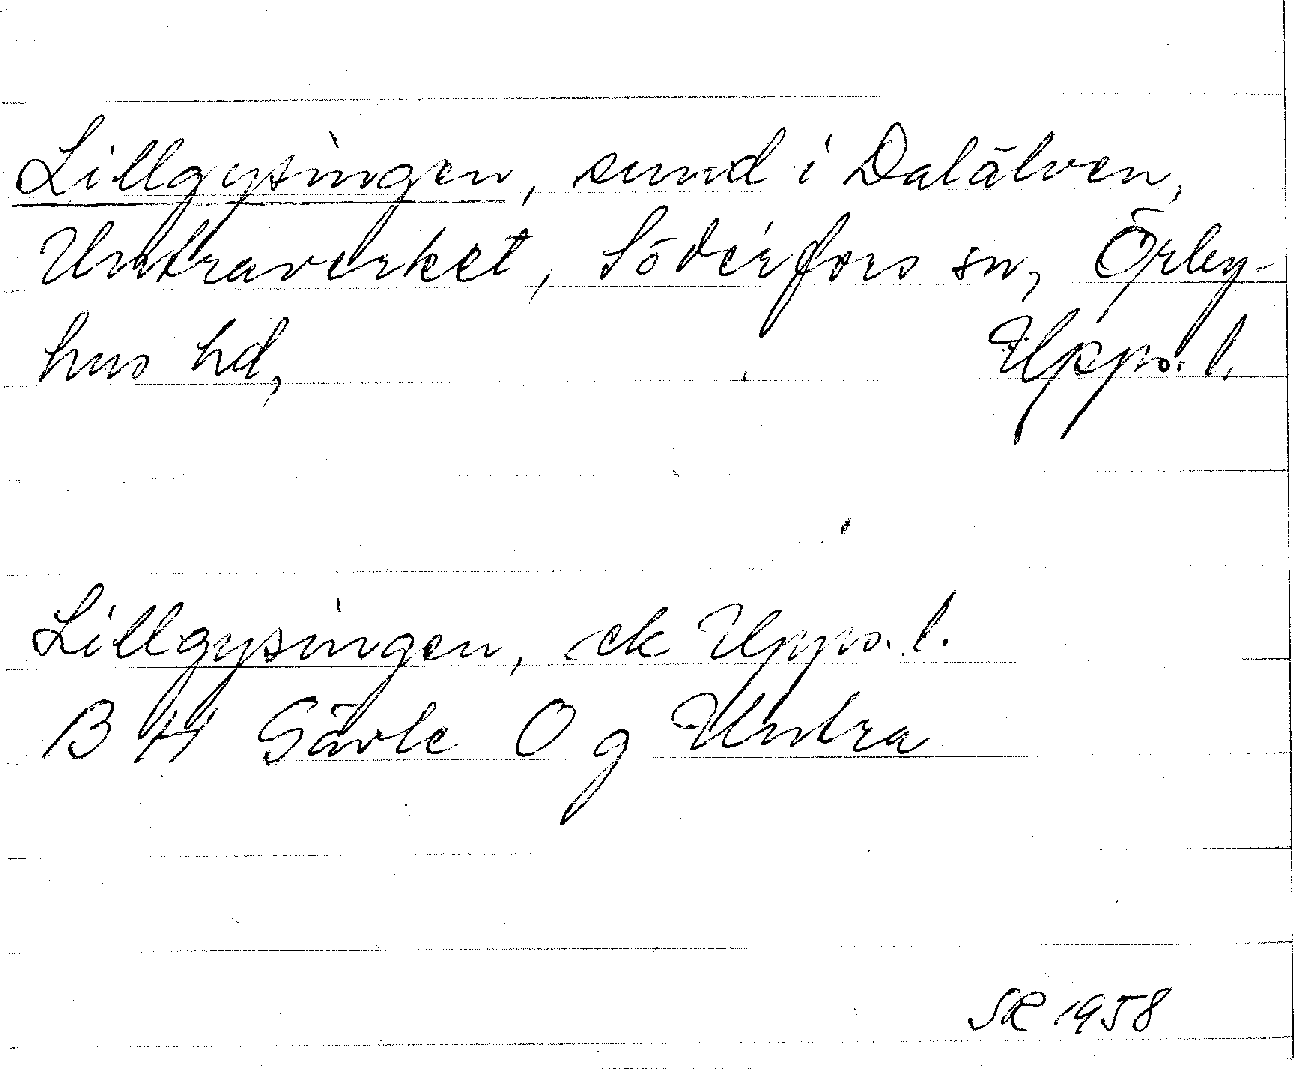 Lillgysingen, sund i Dalälven,
Untraverket, Söderfors sn, Örby-
hus hd, Upps. l.
Lillgysingen, ek Upps. l.
B 44 Gävle O g Untra
SR 1958